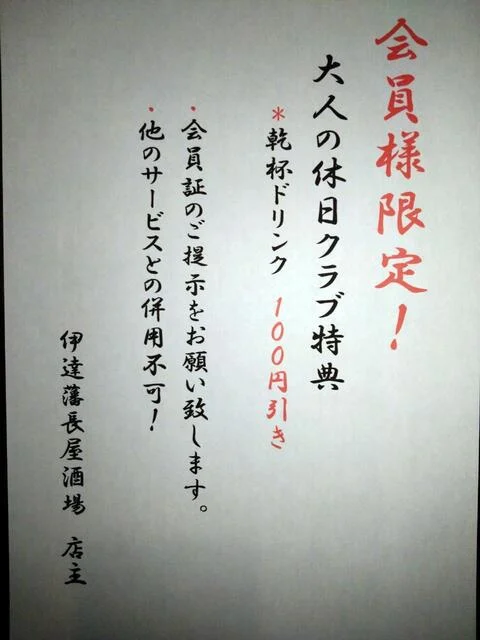 会員様限定！
大人の休日クラブ特典
＊乾杯ドリンク 100円引き
・会員証のご提示をお願い致します。
・他のサービスとの併用不可！
伊達藩長屋酒場 店主